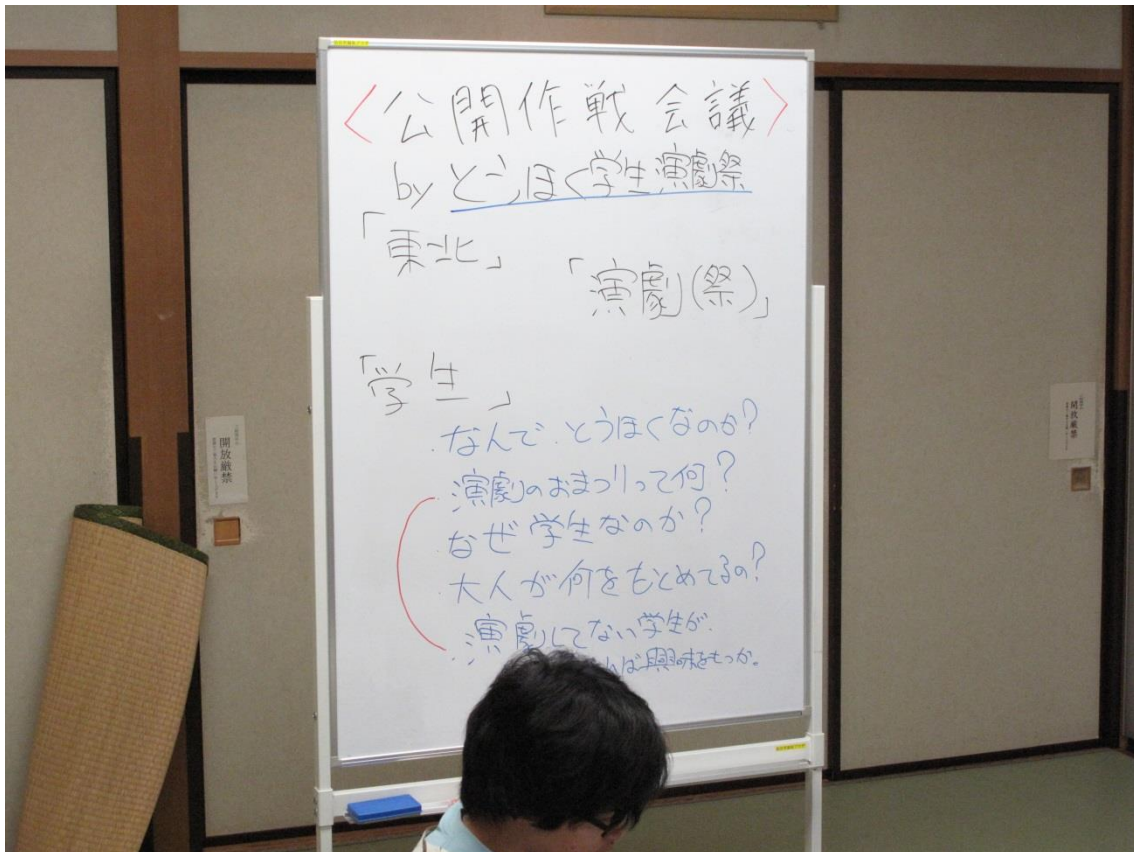 〈公開作戦会議〉
by とうほく学生演劇祭
「東北」
「演劇(祭)」
「学生」
・なんで、とうほくなのか?
・演劇のおまつりって何?
なぜ学生なのか?
大人が何をもとめてるの?
・演劇してない学生が、
ば興味をもつか。
開放厳禁
開放厳禁